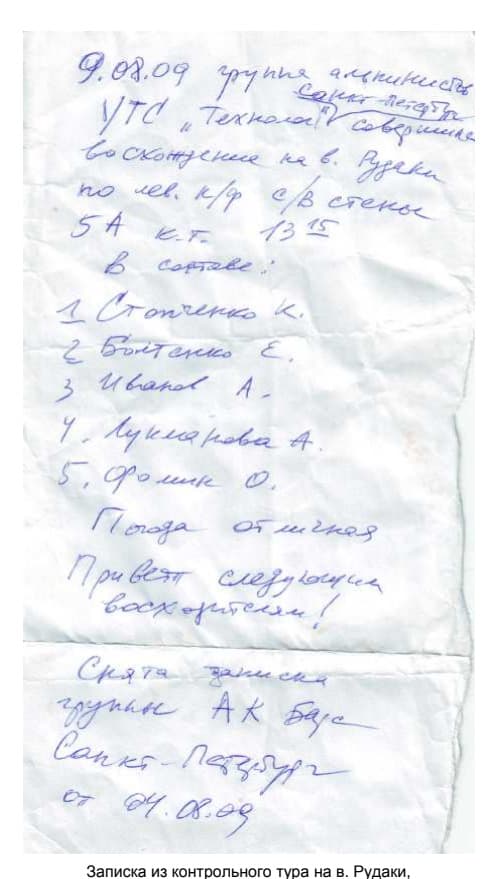 9.08.09 группа альпинистов
Санкт-Петербург
УТС „Технолог" совершила
восхождение на в. Рудаки
по лев. к/ф с/в стены
5А к.т. 13 15
в составе:
1 Стопченко К.
2 Болтенко Е.
3 Иванов А.
4. Лукманова А.
5. Фомин О.
Погода отличная
Привет следующим
восходителям!
Снята записка
группы АК Барс
Санкт-Петербург
от 04.08.09
Записка из контрольного тура на в. Рудаки,